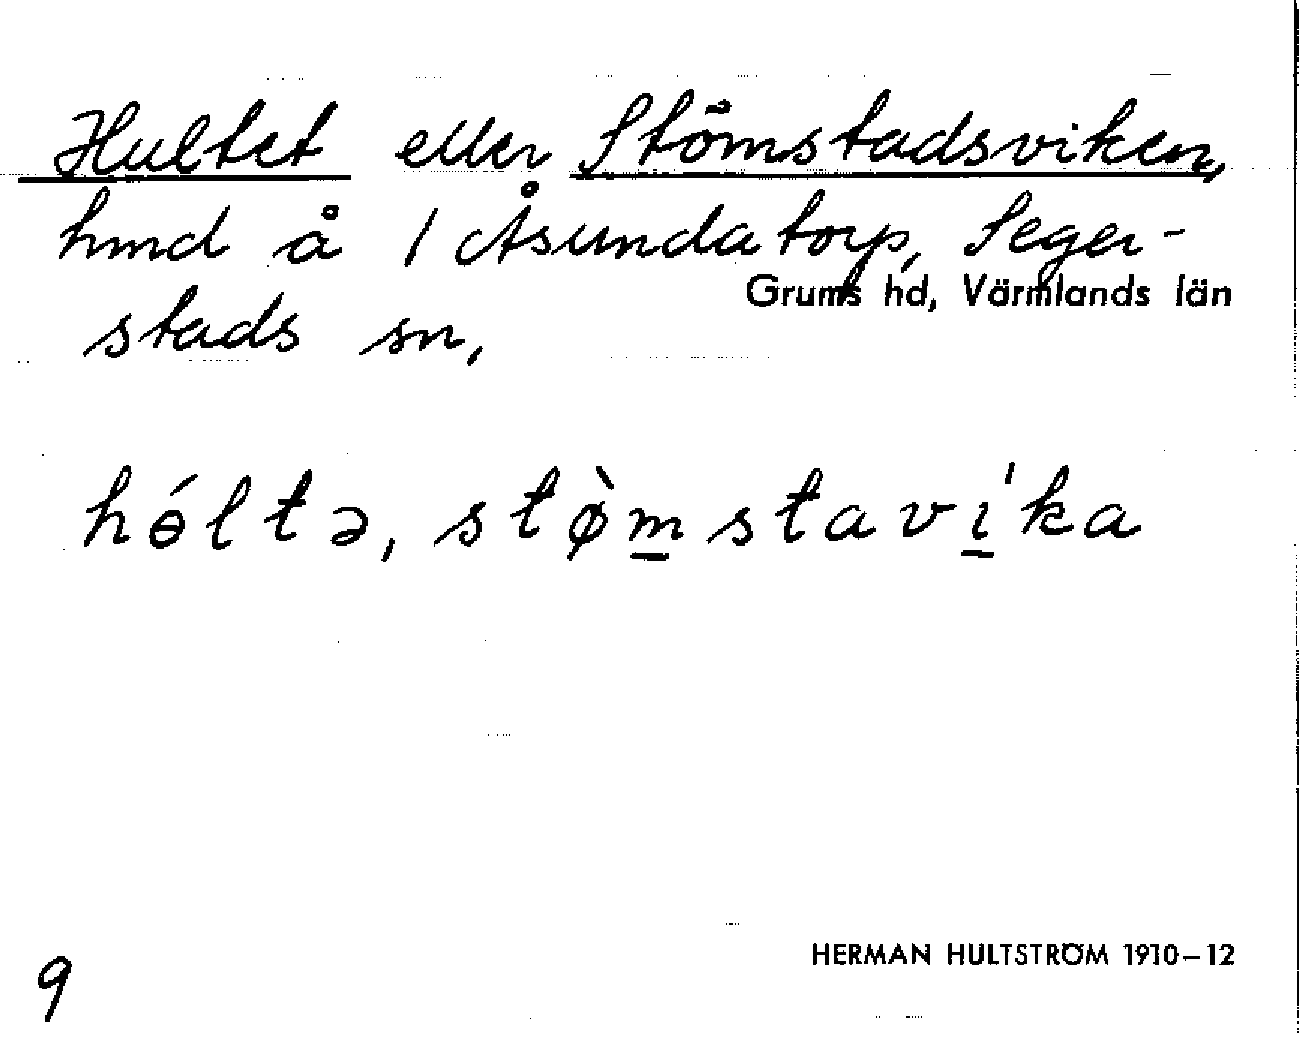 Hultet eller Stömstadsviken,
hmd å 1 Åsundatorp, Seger-
Grums hd, Värmlands län
stads sn,
hǿltə, stø̀m̲stavi̲̍ka
HERMAN HULTSTRÖM 1910–12
9